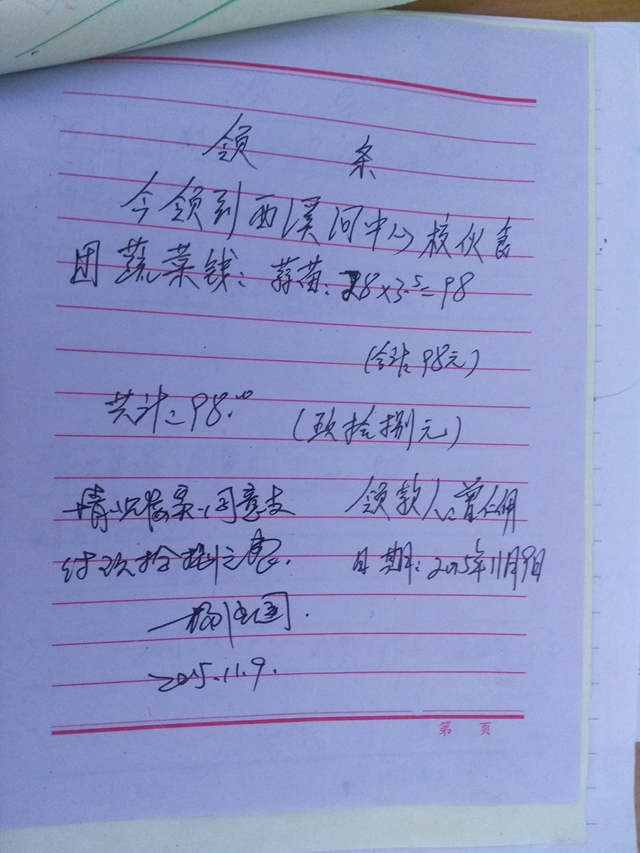 领 条
今领到西溪河中心校伙食
团蔬菜钱：蒜苗：28×3.5=98
(合计：98元)
共计：98.00 (玖拾捌元)
情况属实，同意支 领款人：曾仁佣
付玖拾捌元 日期：2015年11月9日
2015.11.9.
第 页